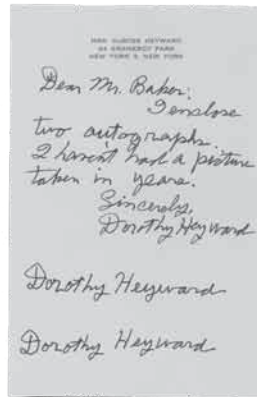 MRS. DUBOSE HEYWARD
GRAMERCY PARK
NEW YORK 3, NEW YORK
Dear Mr. Baker:
I enclose
two autographs.
I haven't had a picture
taken in years.
Sincerely,
Dorothy Heyward
Dorothy Heyward
Dorothy Heyward